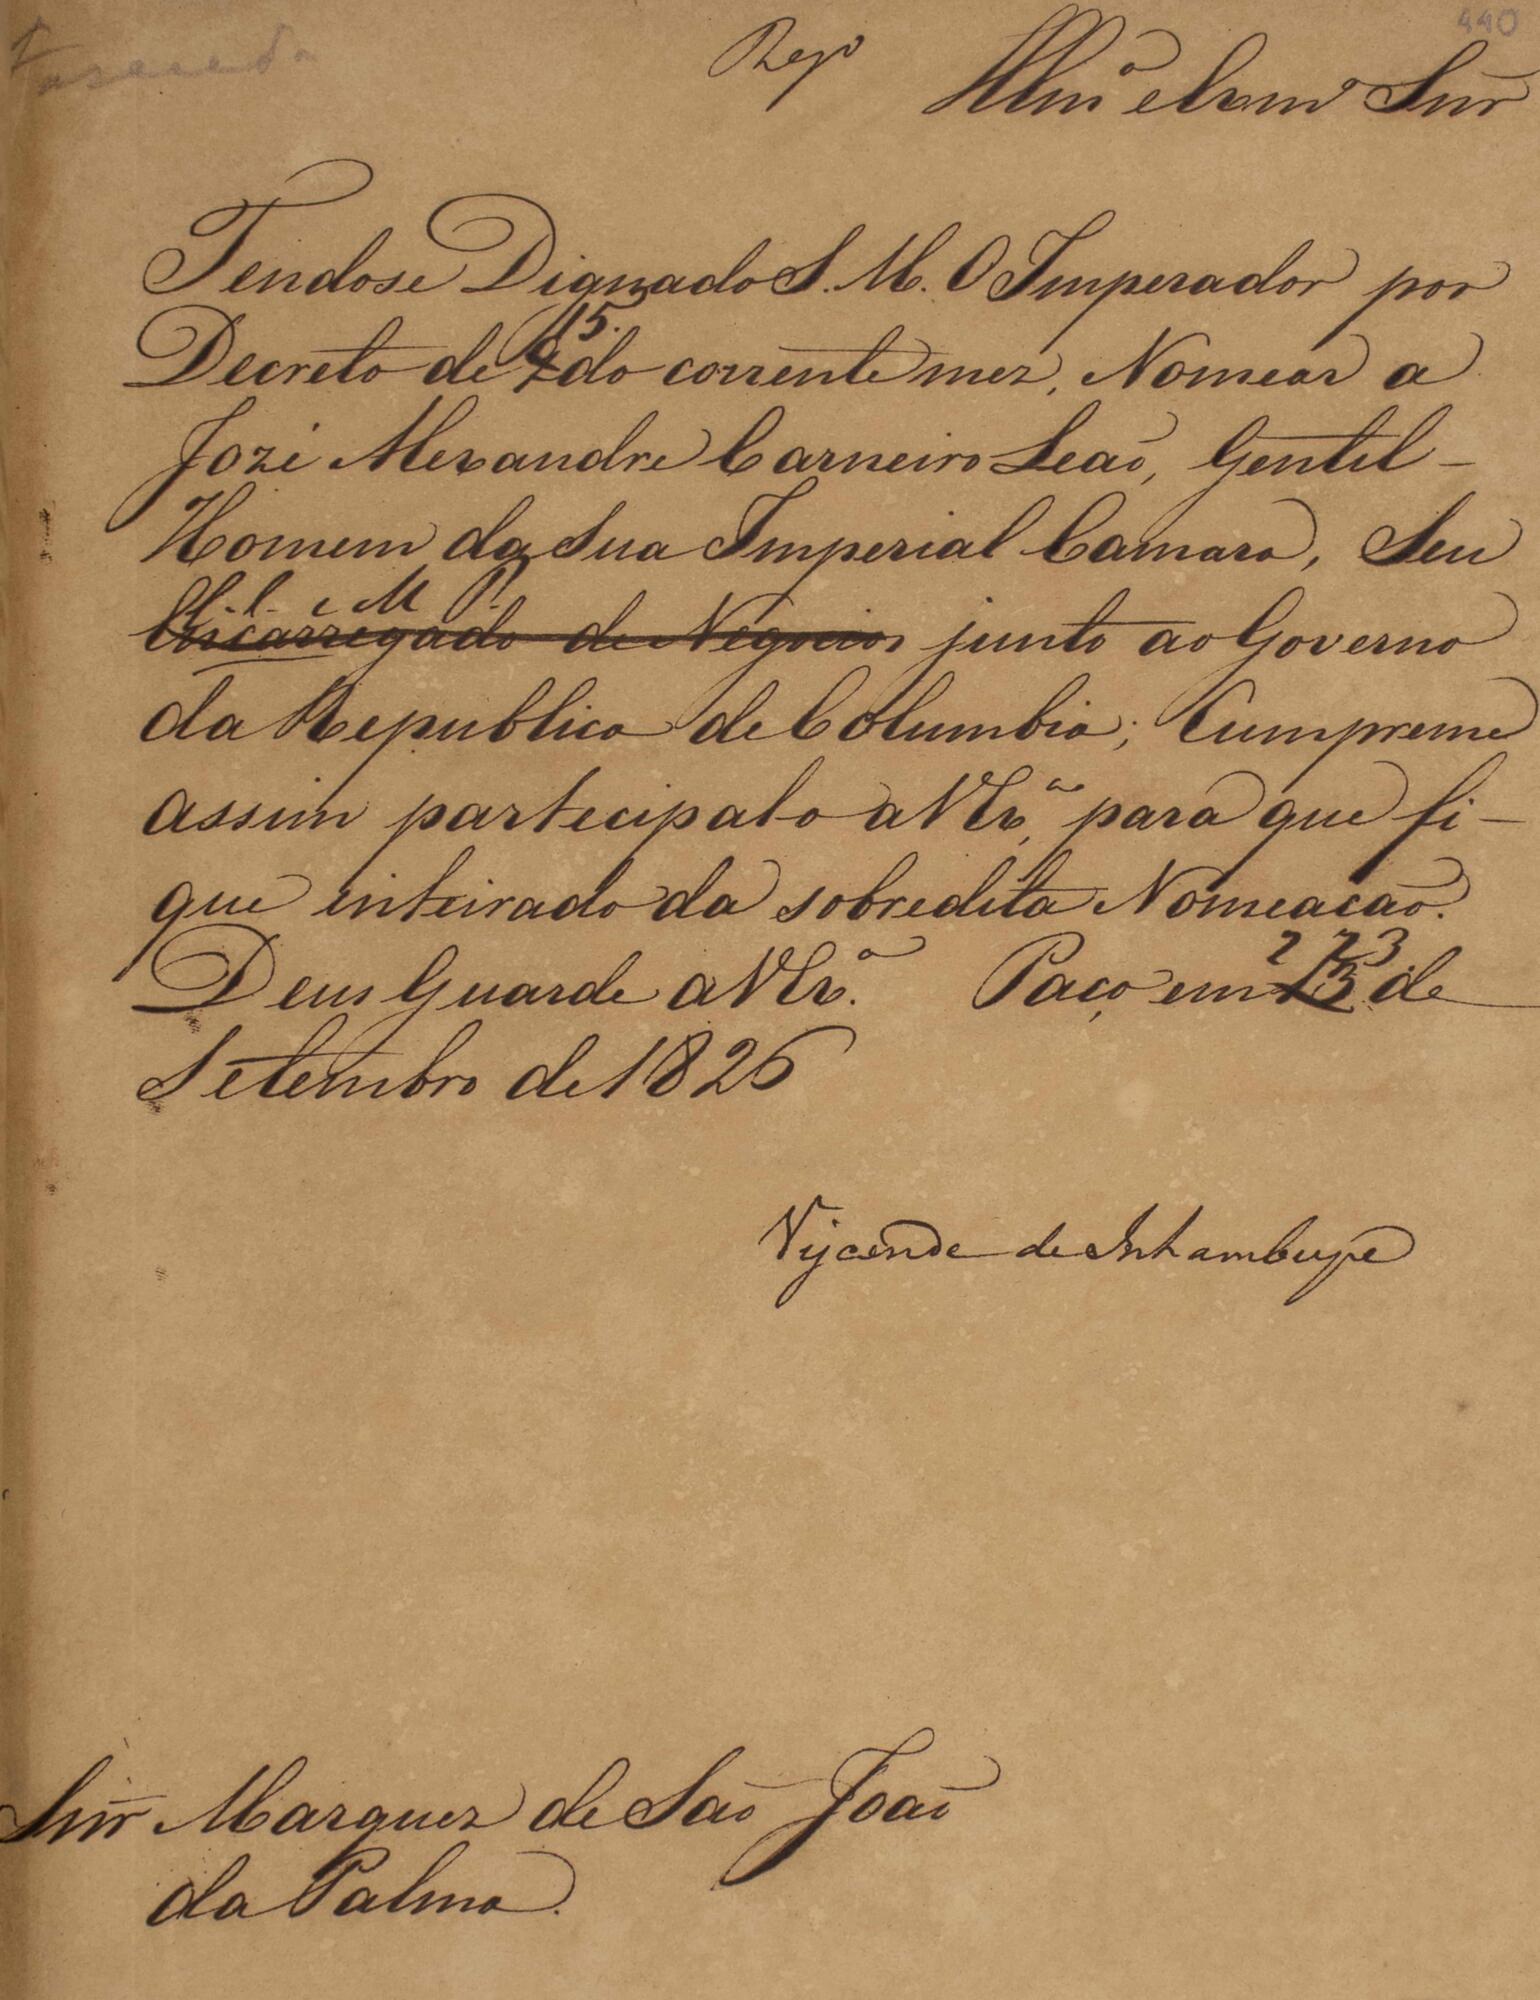 440
Reg.º
Illmº e Exmº Snr
Tendose Dignado S. M. O Imperador por
15.
Decreto de 9 do corrente mez, Nomear a
Jozé Alexandre Carneiro Leaõ, Gentil-
Homem da Sua Imperial Camara, Seu
E. M. P.
Encarregado de Negocios junto ao Governo
da Republica de Columbia; Cumpreme
assim participalo a V Exª para que fi-
que inteirado da sobredita Nomeacaõ.
Deus Guarde a V Exª. Paço em 13 de
23
Setembro de 1826
Viscende de Inhambupe
Snr Marquez de Saõ Joaõ
da Palma.